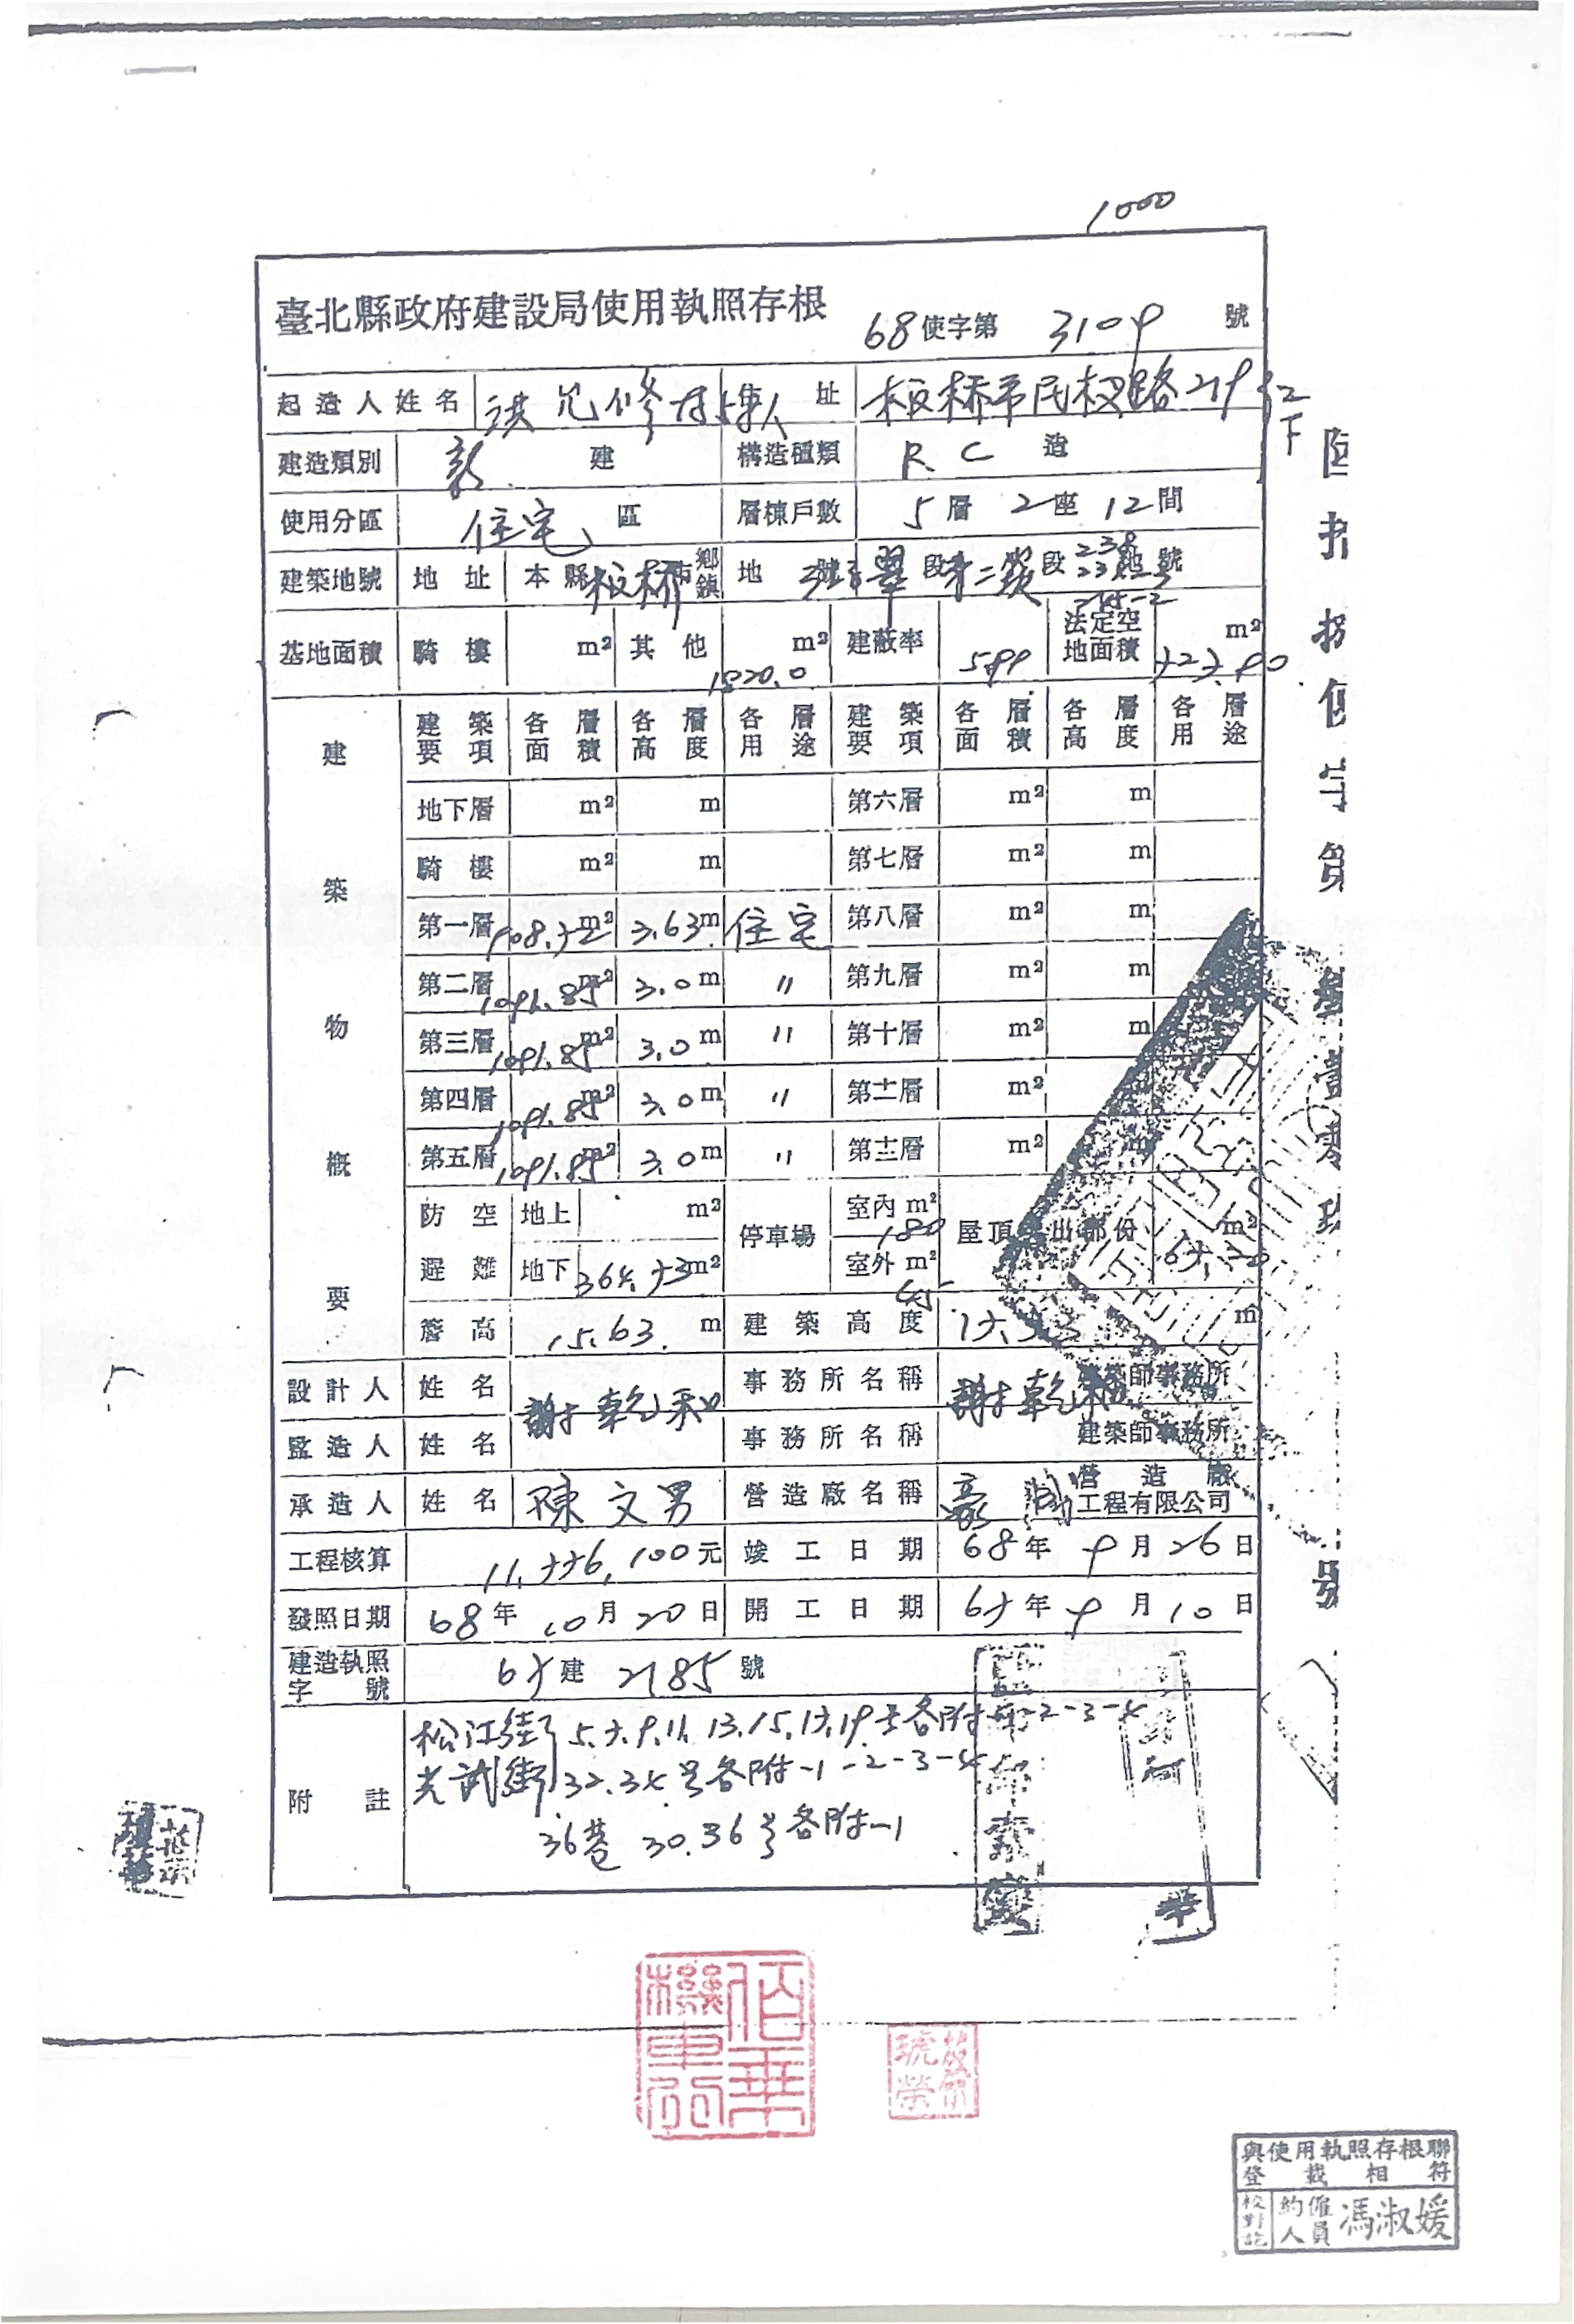 1000
臺北縣政府建設局使用執照存根 68使字第 3109 號
起造人姓名 洪 修 址 板橋市民权路219
建造類別 新 建 構造種類 R.C 造
使用分區 住宅 區 層棟戶數 5層 2座 12間
建築地號 地址 本縣板橋市鄉鎮 地 翠 段第二 段 238 地號
基地面積 騎樓 m² 其他 1820.0 m² 建蔽率 法定空地面積 727.90 m²
建築物概要
建築要項 各層面積 各層高度 各層用途 建築要項 各層面積 各層高度 各層用途
地下層 m² m 第六層 m² m
騎樓 m² m 第七層 m² m
第一層 908.72 m² 3.63 m 住宅 第八層 m² m
第二層 1091.85 m² 3.0 m 〃 第九層 m² m
第三層 1091.85 m² 3.0 m 〃 第十層 m² m
第四層 1091.85 m² 3.0 m 〃 第十一層 m² m
第五層 1091.85 m² 3.0 m 〃 第十二層 m² m
防空避難 地上 m² 停車場 室內 m² 180 屋頂 出部份 m²
地下 364.73 m² 室外 m² 45
簷高 15.63 m 建築高度 m
設計人 姓名 謝乾和 事務所名稱 謝乾和 建築師事務所
監造人 姓名 事務所名稱 建築師事務所
承造人 姓名 陳文男 營造廠名稱 豪 營造廠 工程有限公司
工程核算 11,776,100元 竣工日期 68年 9月 26日
發照日期 68年 10月 20日 開工日期 67年 9月 10日
建造執照字號 67建 2185 號
附註 松江街 5.7.9.11.13.15.17.19号各附-1-2-3-4
光武街 32.34号各附-1-2-3-4
36巷 30.36号各附-1
使字第
號
與使用執照存根聯
登載相符
校對訖 約僱人員 馮淑媛